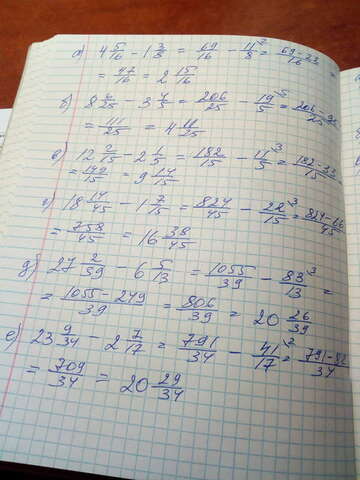 а) 4 5/16 − 1 3/8 = 69/16 − 11/8² = 69-22/16 =
= 47/16 = 2 15/16
б) 8 6/25 − 3 4/5 = 206/25 − 19/5⁵ = 206-95/25
= 111/25 = 4 11/25
в) 12 2/15 − 2 1/5 = 182/15 − 11/5³ = 182-33/15 =
= 149/15 = 9 14/15
г) 18 14/45 − 1 7/15 = 824/45 − 28/15³ = 824-66/45
= 758/45 = 16 38/45
д) 27 2/59 − 6 5/13 = 1055/39 − 83/13³ =
= 1055-249/39 = 806/39 = 20 26/39
е) 23 9/34 − 2 7/17 = 791/34 − 41/17² = 791-82/34
= 709/34 = 20 29/34